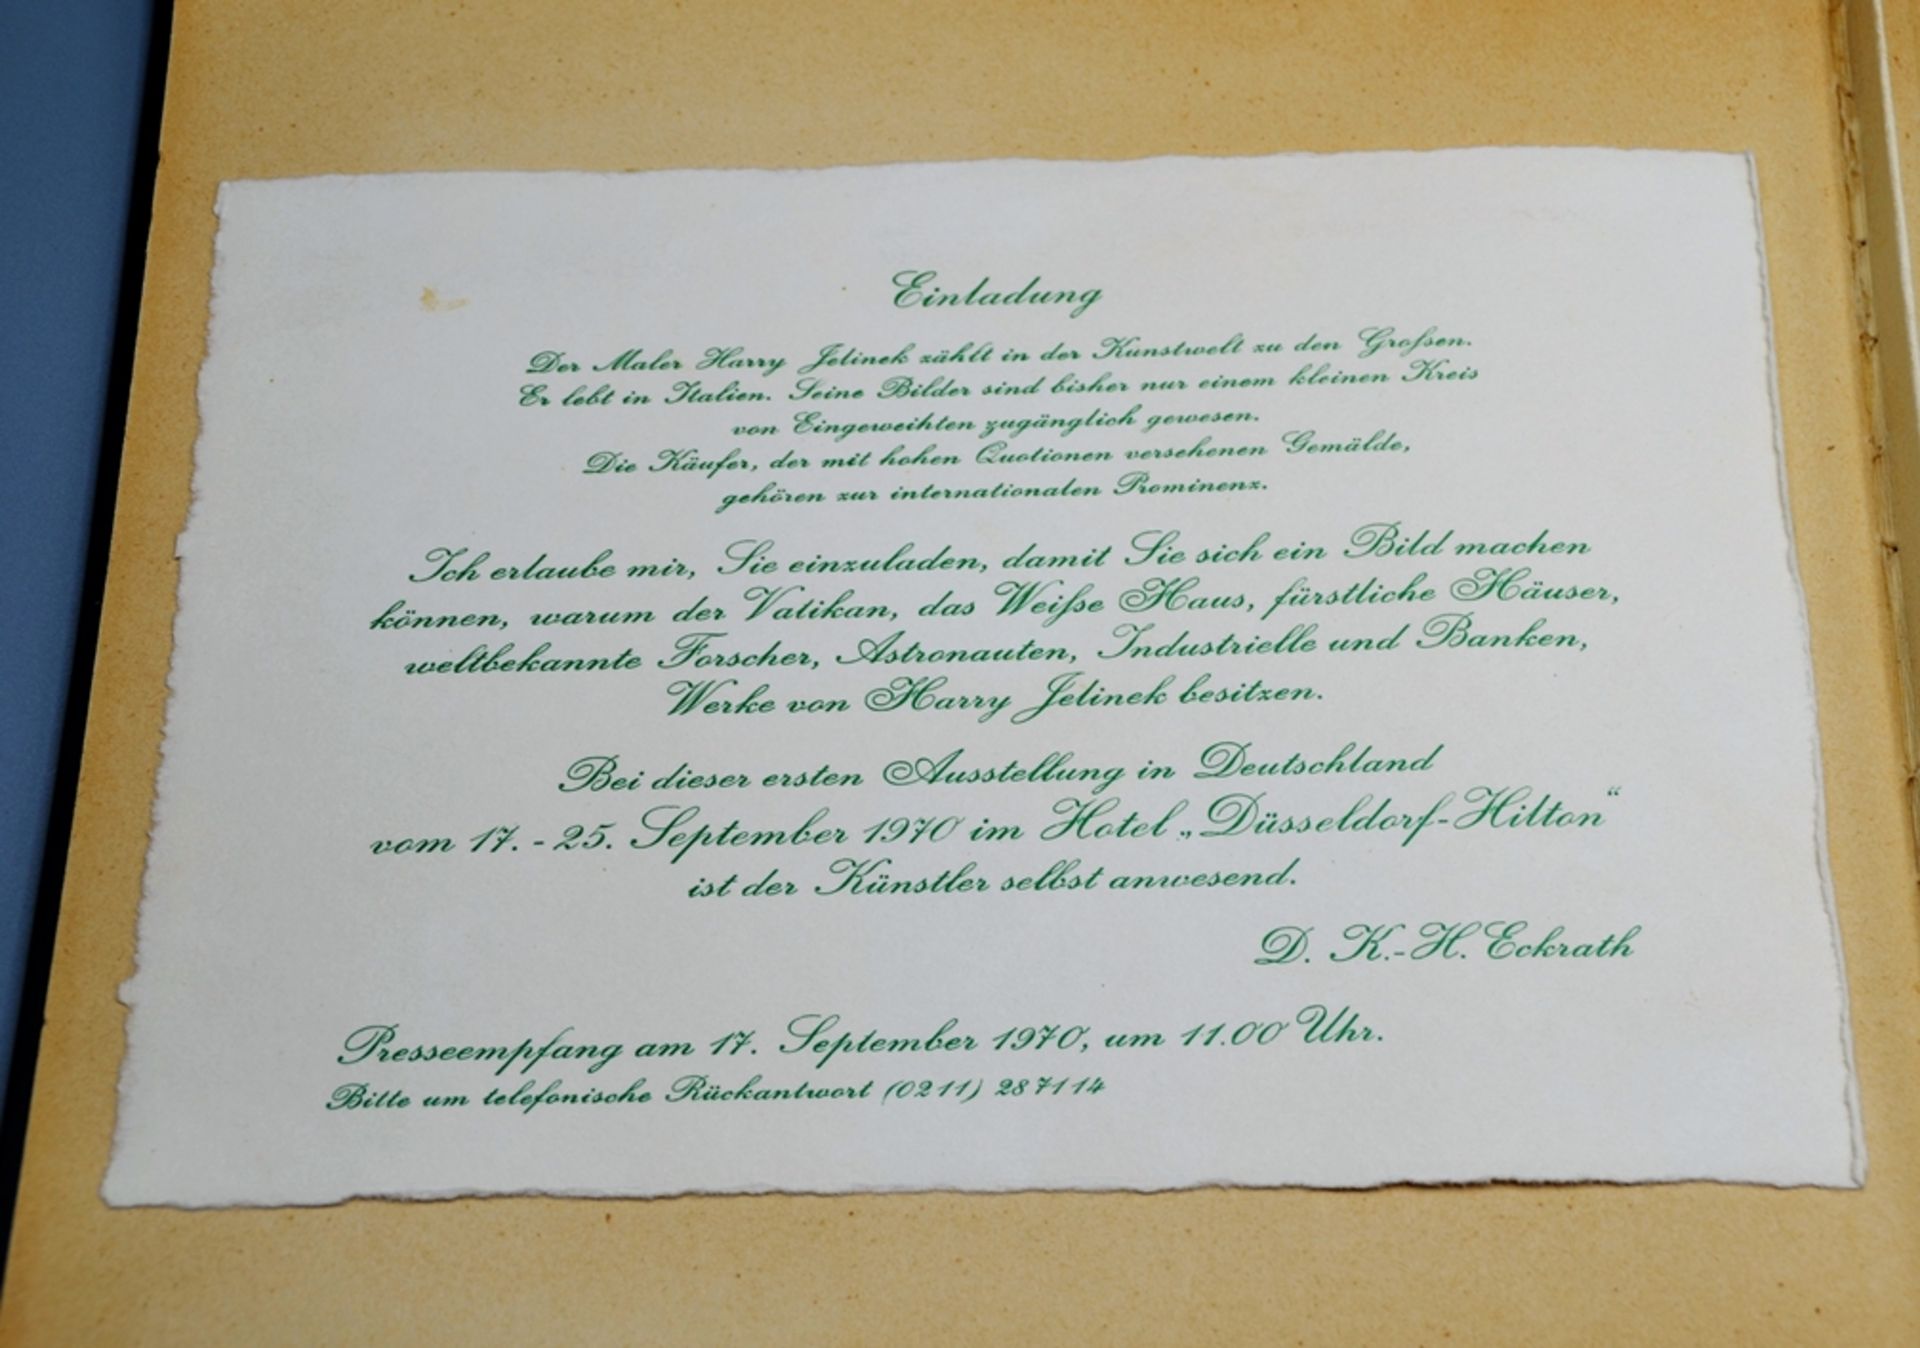 Einladung
Der Maler Harry Jelinek zählt in der Kunstwelt zu den Großen.
Er lebt in Italien. Seine Bilder sind bisher nur einem kleinen Kreis
von Eingeweihten zugänglich gewesen.
Die Käufer, der mit hohen Quotionen versehenen Gemälde,
gehören zur internationalen Prominenz.
Ich erlaube mir, Sie einzuladen, damit Sie sich ein Bild machen
können, warum der Vatikan, das Weiße Haus, fürstliche Häuser,
weltbekannte Forscher, Astronauten, Industrielle und Banken,
Werke von Harry Jelinek besitzen.
Bei dieser ersten Ausstellung in Deutschland
vom 17. - 25. September 1970 im Hotel „Düsseldorf-Hilton“
ist der Künstler selbst anwesend.
D. K.-H. Eckrath
Presseempfang am 17. September 1970, um 11.00 Uhr.
Bitte um telefonische Rückantwort (0211) 287114